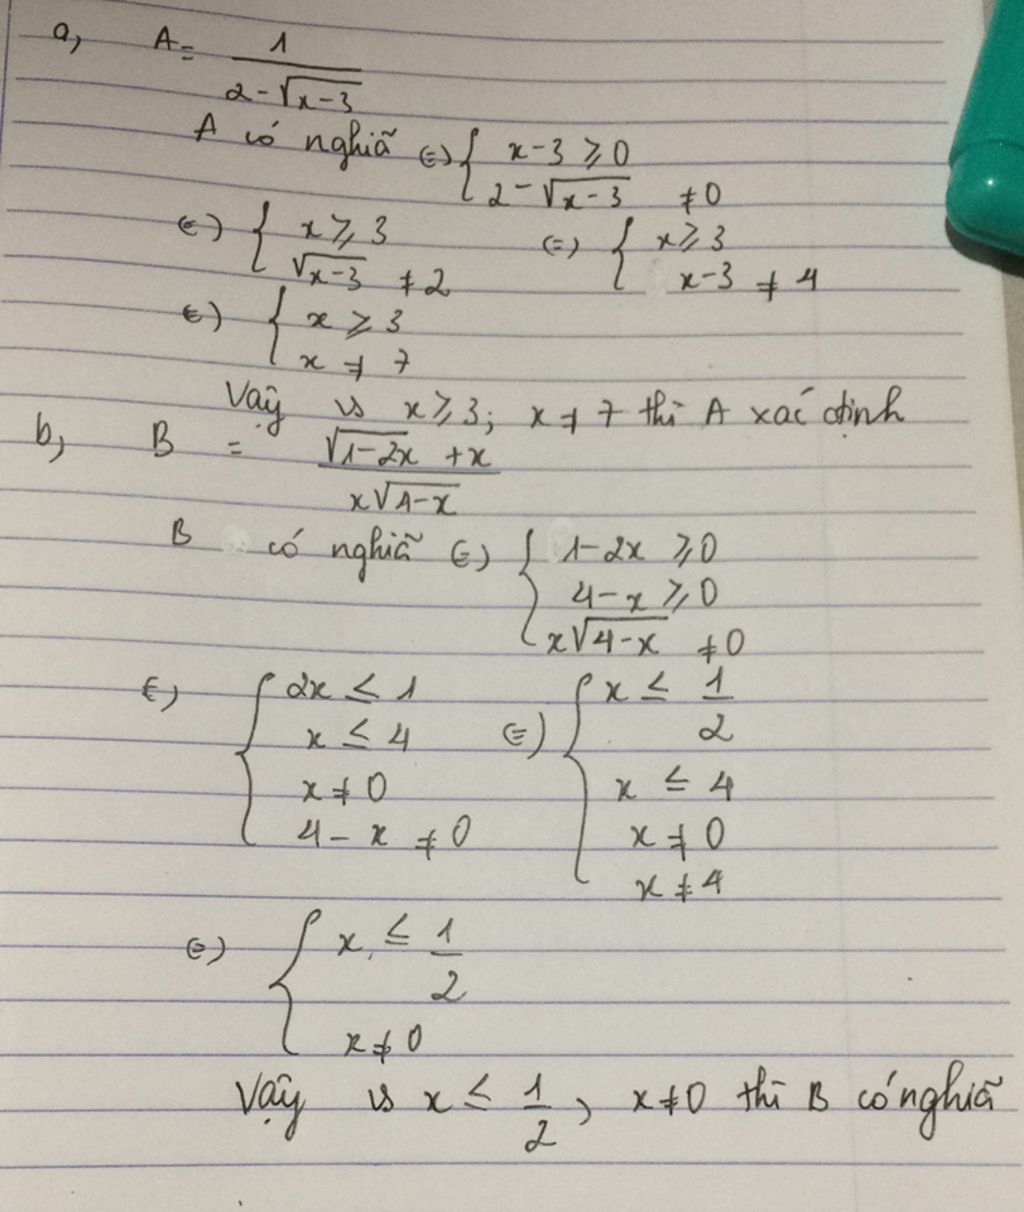 a, A = 1 / (2 - √(x-3))
A có nghĩã (=) { x-3 ≥ 0
2 - √(x-3) ≠ 0
(=) { x ≥ 3 (=) { x ≥ 3
√(x-3) ≠ 2 x-3 ≠ 4
(=) { x ≥ 3
x ≠ 7
Vậy vs x ≥ 3; x ≠ 7 thì A xác định
b, B = (√(1-2x) + x) / (x√(4-x))
B có nghĩã (=) { 1-2x ≥ 0
4-x ≥ 0
x√(4-x) ≠ 0
(=) { 2x ≤ 1 (=) { x ≤ 1/2
x ≤ 4 x ≤ 4
x ≠ 0 x ≠ 0
4 - x ≠ 0 x ≠ 4
(=) { x ≤ 1/2
x ≠ 0
Vậy vs x ≤ 1/2, x ≠ 0 thì B có nghĩã